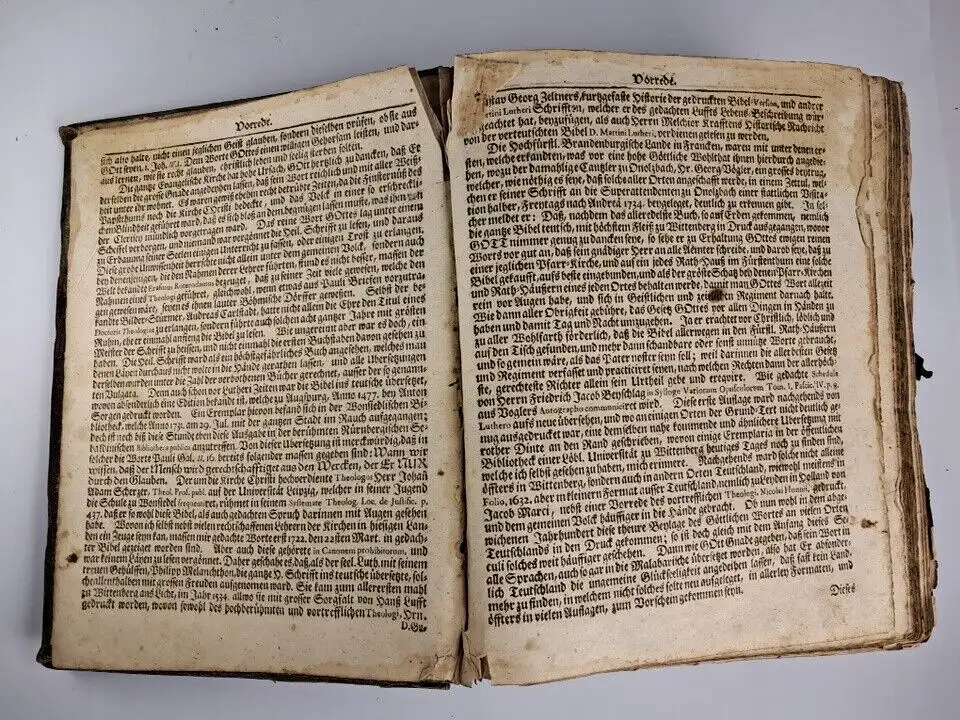 Vorrede.
sich also halte, nicht einen jeglichen Geist glauben, sondern dieselben prüfen, ob sie aus
GOtt seyen. 1. Joh. IV. 1. Dem Worte GOttes einen willigen Gehorsam leisten, und dar-
aus lernen, wie sie recht glauben, christlich leben und seelig sterben sollen.
Die gantze Evangelische Kirche hat hohe Ursach, GOtt hertzlich zu dancken, daß Er
derselben die grosse Gnade angedeyhen lassen, daß sein Wort reichlich und mit aller Weiß-
heit unter ihr wohnet. Es waren gewiß höchst betrübte Zeiten, da die Finsterniß des
Pabstthums noch die Kirche Christi bedeckte, und das Volck in einer so erschröckli-
chen Blindheit geführet ward, daß es sich bloß an dem begnügen lassen muste, was ihm von
der Clerisey mündlich vorgetragen ward. Das reine Wort GOttes lag unter einem
Scheffel verborgen, und niemand war vergönnet die Heil. Schrifft zu lesen, und daraus
zu Erbauung seiner Seelen einigen Unterricht zu fassen, oder einigen Trost zu erlangen.
Diese grobe Unwissenheit herrschte nicht allein unter dem gemeinen Volck, sondern auch
bey denenjenigen, die den Nahmen derer Lehrer führten, stund es nicht besser, massen der
Welt bekandte Erasmus Roterodamus bezeuget, daß zu seiner Zeit viele gewesen, welche den
Nahmen eines Theologi geführet, gleichwohl, wenn etwas aus Pauli Briefen vorzutra-
gen gewesen wäre, seyen es ihnen lauter Böhmische Dörffer gewesen. Selbst der be-
kandte Bilder-Stürmer, Andreas Carlstadt, hatte nicht allein die Ehre den Titul eines
Doctoris Theologiæ zu erlangen, sondern führte auch solchen acht gantzer Jahre mit grösten
Ruhm, ehe er einmahl anfieng die Bibel zu lesen. Wie ungereimt aber war es doch, ein
Meister der Schrifft zu heissen, und nicht einmahl die ersten Buchstaben davon gesehen zu
haben. Die Heil. Schrifft ward als ein höchstgefährliches Buch angesehen, welches man
denen Läyen durchaus nicht wolte in die Hände gerathen lassen, und alle Übersetzungen
derselben wurden unter die Zahl der verbothenen Bücher gerechnet, ausser der so genann-
ten Vulgata. Denn auch schon vor Lutheri Zeiten war die Bibel ins teutsche übersetzet,
wovon absonderlich eine Edition bekandt ist, welche zu Augspurg, Anno 1477. bey Anton
Sorgen gedruckt worden. Ein Exemplar hievon befand sich in der Wonsidelischen Bi-
bliotheck, welche Anno 1731. am 29. Jul. mit der gantzen Stadt im Rauch aufgegangen;
doch ist noch biß diese Stunde eben diese Ausgabe in der berühmten Nürnbergischen Se-
baldinischen Bibliotheca publica anzutreffen. Von dieser Übersetzung ist merckwürdig, daß in
solcher die Worte Pauli Gal. II. 16. bereits folgender massen gegeben sind: Wann wir
wissen, daß der Mensch wird gerechtfafftiget aus den Wercken, der Er NUR
durch den Glauben. Der um die Kirche Christi hochverdiente Theologus Herr Johañ
Adam Scherzer, Theol. Prof. publ. auf der Universität Leipzig, welcher in seiner Jugend
die Schule zu Wonsidel frequentiret, rühmet in seinem Systemate Theolog. Loc. de Justific. p.
437. daß er so wohl diese Bibel, als auch gedachten Spruch darinnen mit Augen gesehen
habe. Wovon ich selbst nebst vielen rechtschaffenen Lehrern der Kirchen in hiesigen Lan-
den ein Zeuge seyn kan, massen mir gedachte Worte erst 1722. den 22sten Mart. in gedach-
ter Bibel gezeiget worden sind. Aber auch diese gehörete in Canonem prohibitorum, und
war keinem Läyen zu lesen vergönnet. Daher geschahe es daß, als der seel. Luth. mit seinem
treuen Gehülffen, Philipp Melanchthon, die gantze H. Schrifft ins teutsche übersetzte, sol-
che allenthalben mit grossen Freuden aufgenommen ward. Sie kam zum allerersten mahl
zu Wittenberg ans Licht, im Jahr 1534. allwo sie mit grosser Sorgfalt von Hanß Lufft
gedruckt worden, wovon sowohl des hochberühmten und vortrefflichen Theologi, Hrn.
D. Gu-
Vorrede.
Gustav Georg Zeltners, kurtzgefaste Historie der gedruckten Bibel-Version, und andrer
Martini Lutheri Schrifften, welcher er des gedachten Luffts Lebens-Beschreibung wür-
geachtet hat, beyzufügen, als auch Herrn Melchior Krafftens Historische Nachricht
von der verteutschten Bibel D. Martini Lutheri, verdienen gelesen zu werden.
Die Hochfürstl. Brandenburgische Lande in Francken, waren mit unter denen er-
sten, welche erkandten, was vor eine hohe Göttliche Wohlthat ihnen hierdurch angedie-
hen, wozu der damahlige Cantzler zu Onolzbach, Hr. Georg Vogler, ein grosses beytrug,
welcher, wie nöthig es seye, daß solche aller Orten angeschafft werde, in einem Zettul, wel-
chen er seiner Schrifft an die Superattendenten zu Onolzbach einer Stattlichen Visita-
tion halber, Freytags nach Andreä 1734. beygeleget, deutlich zu erkennen gibt. In sol-
cher meldet er: Daß, nachdem das alleredelste Buch, so auf Erden gekommen, nemlich
die gantze Bibel teutsch, mit höchstem Fleiß zu Wittenberg in Druck ausgegangen, wovor
GOTT nimmer genug zu dancken seye, so sehe er zu Erhaltung GOttes ewigen reinen
Worts vor gut an, daß sein gnädiger Herr an alle Aemter schreibe, und darob seye, daß zu
einer jeglichen Pfarr-Kirche, und auf ein jedes Rath-Hauß im Fürstenthum eine solche
Bibel gekaufft, aufs beste eingebunden, und als der gröste Schatz bey denen Pfarr-Kirchen
und Rath-Häusern eines jeden Orten behalten werde, damit man GOttes Wort allezeit
rein vor Augen habe, und sich in Geistlichen und zeitlichen Regiment darnach halte.
Wie dann aller Obrigkeit gebühre, das Gesetz GOttes vor allen Dingen in Händen zu
haben und damit Tag und Nacht umzugehen. Ja er erachtet vor Christlich, löblich und
zu aller Wohlfarth förderlich, daß die Bibel allerwegen in den Fürstl. Rath-Häusern
auf den Tisch gefunden, und mehr dann schandbare oder sonst unnütze Worte gebraucht,
und so gemein wäre, als das Pater noster seyn soll; weil darinnen die allerbesten Gesetz
und Regiment verfasset und practiciret seyen, nach welchen Rechten dann der allerhöch-
ste, gerechteste Richter allein sein Urtheil gebe und exequire. Wie gedachte Schedula
von Herrn Friedrich Jacob Beyschlag in Sylloge Variorum Opusculorum Tom. I. Fascic. IV. p. 8.
aus Voglers Autographo communiciret wird. Diese erste Auflage ward nachgehends von
Luthero aufs neue übersehen, und wo an einigen Orten der Grund-Text nicht deutlich ge-
nug ausgedrucket war, eine demselben nahe kommende und ähnlichere Übersetzung mit
rother Dinte an den Rand geschrieben, wovon einige Exemplaria in der öffentlichen
Bibliotheck einer Löbl. Universität zu Wittenberg heutiges Tages noch zu finden sind,
welche ich selbst gesehen zu haben, mich erinnere. Nachgehends ward solche nicht alleine
öffters in Wittenberg, sondern auch in andern Orten Teutschland, wiewohl meistens in
Folio, 1632. aber in kleinern Format ausser Teutschland, nemlich zu Leyden in Holland von
Jacob Marci, nebst einer Vorrede des vortrefflichen Theologi, Nicolai Hunnii, gedruckt,
und dem gemeinen Volck häuffiger in die Hände gebracht. Ob nun wohl in dem abge-
wichenen Jahrhundert diese theure Beylage des Göttlichen Wortes an vielen Orten
Teutschlands in den Druck gekommen; so ist doch gleich mit dem Anfang dieses Se-
culi solches weit häuffiger geschehen. Dann wie GOtt Gnade gegeben, daß sein Wort in
alle Sprachen, auch so gar in die Malabarische übersetzet worden, also hat Er absonder-
lich Teutschland die ungemeine Glückseligkeit angedeihen lassen, daß fast kein Land-
mehr zu finden, in welchem nicht solches solte neu aufgeleget, in allerley Formaten, und
öffters in vielen Auflagen, zum Vorschein gekommen seyn.
Dieses